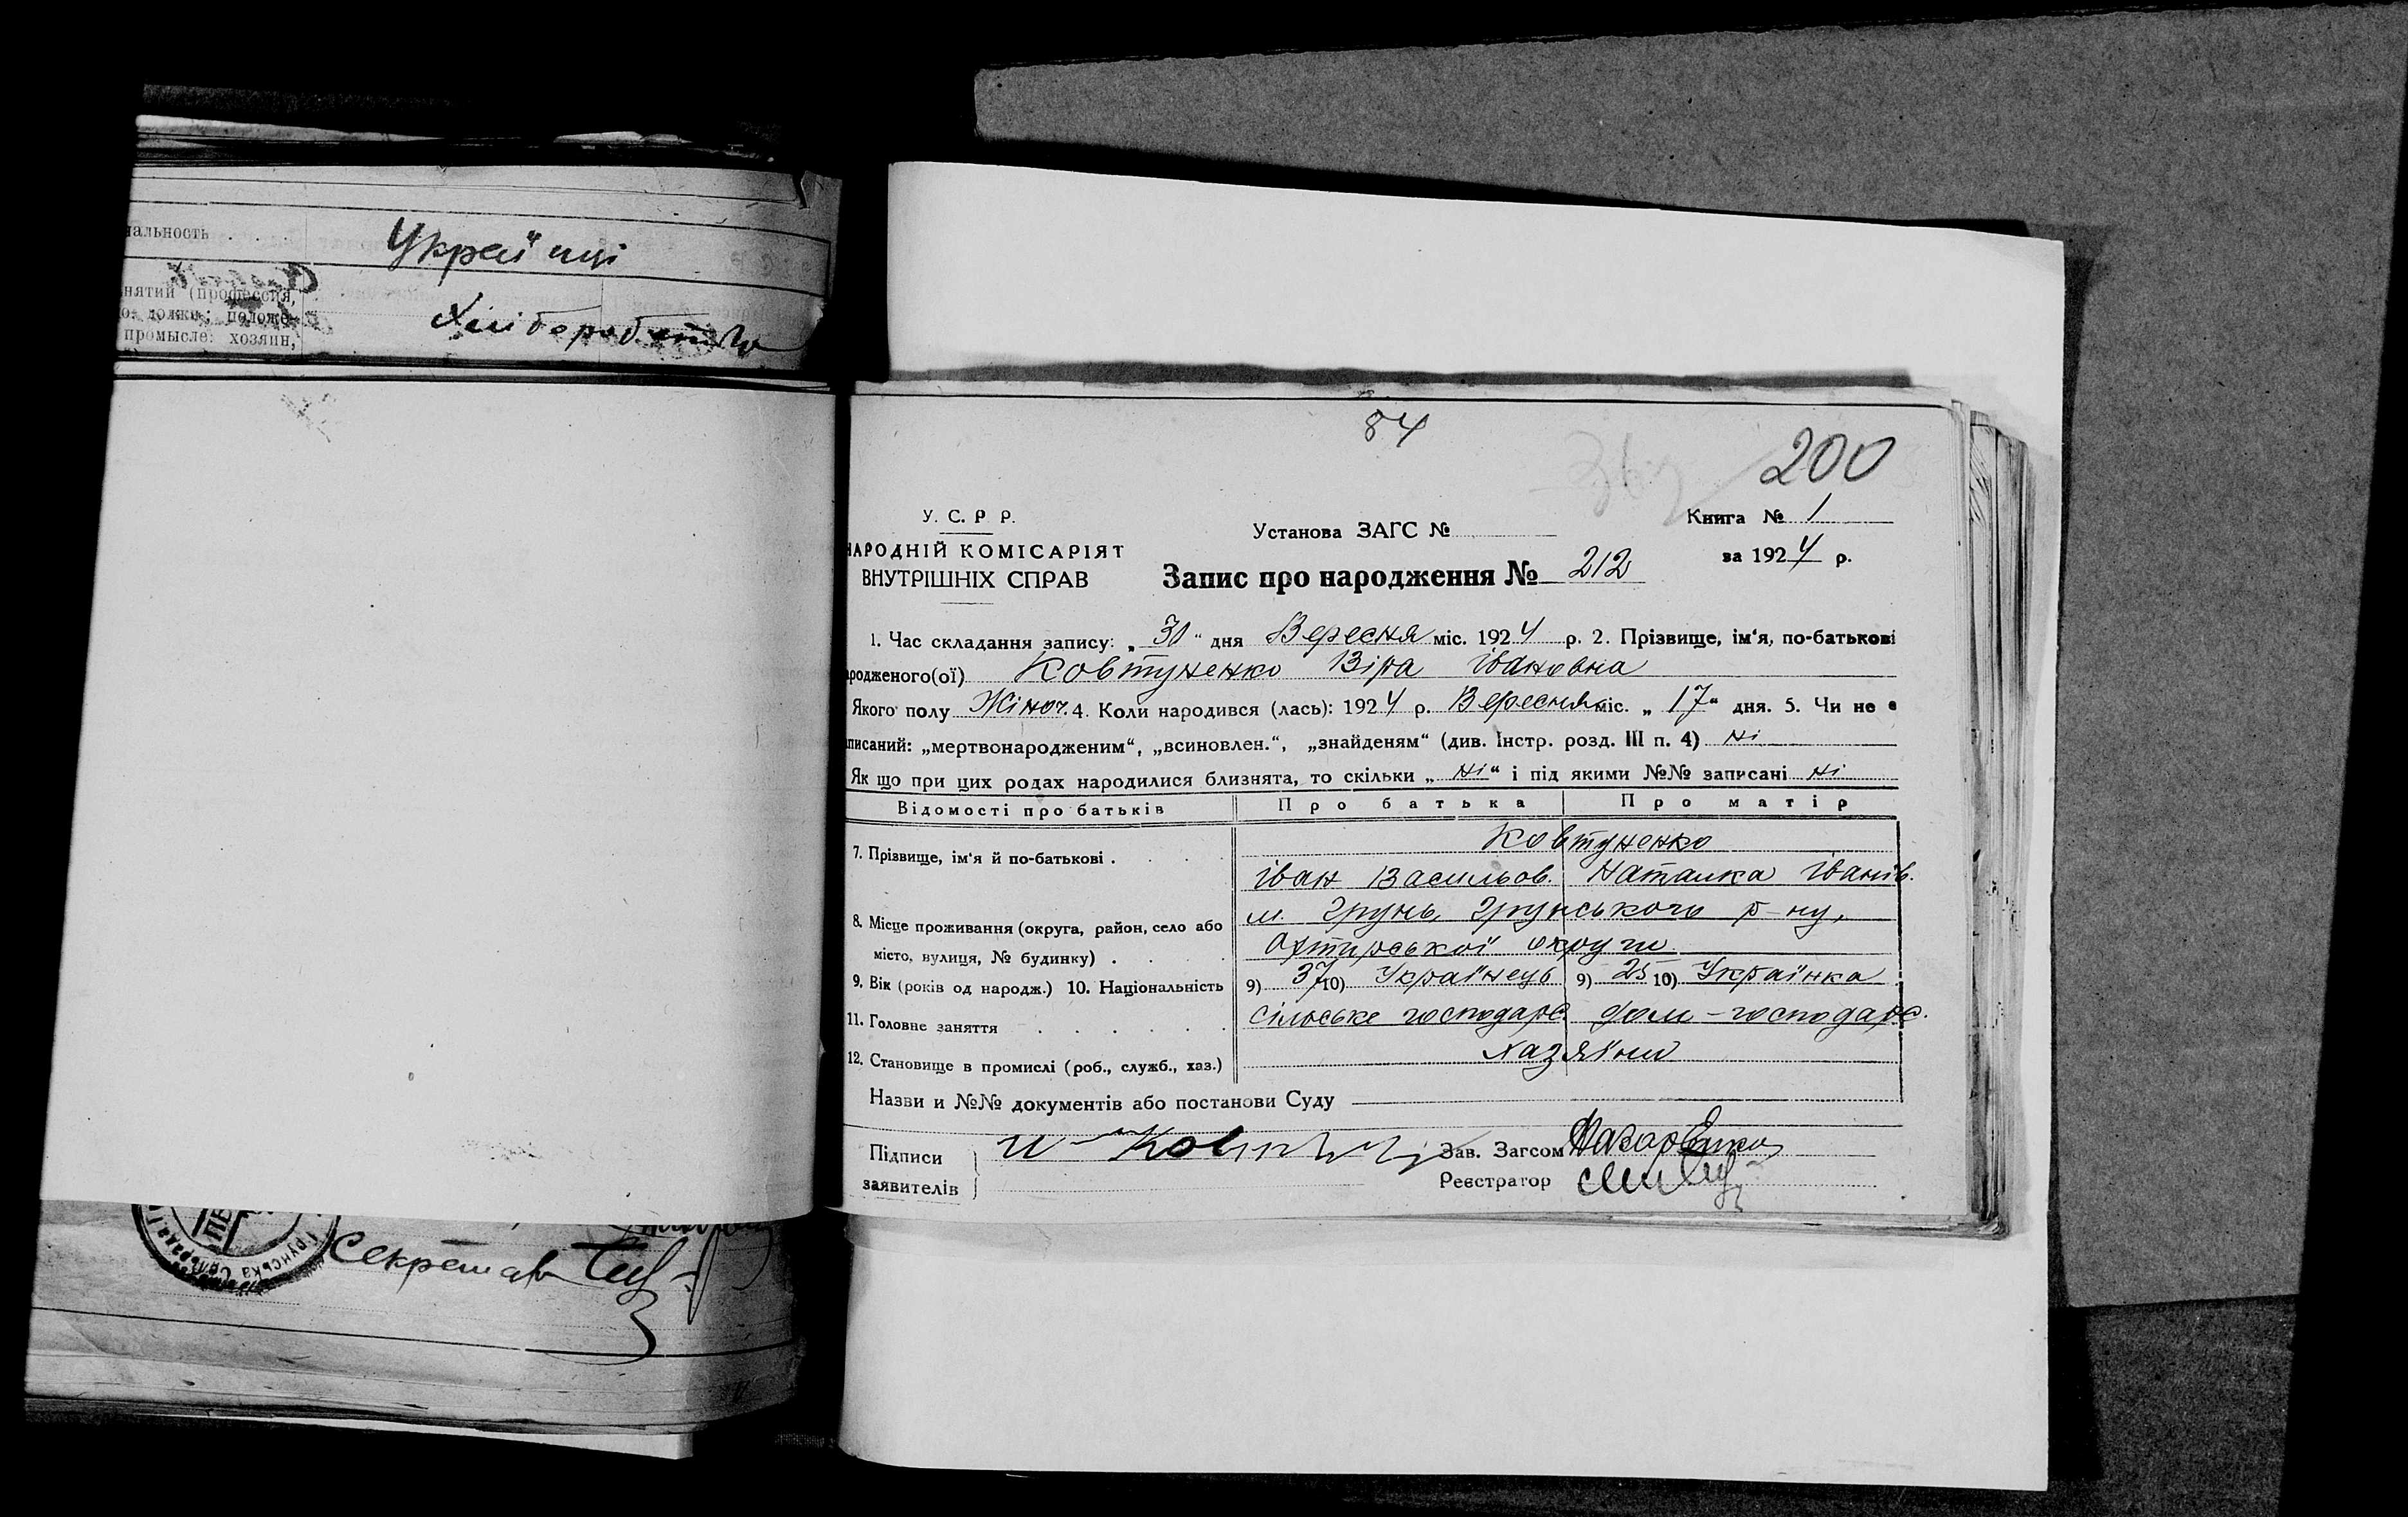 нальность . .
Україці
нятий (профессия,
о. должн; положе-
промысле: хозяин,
Хліборобство
84
200
У. С. Р Р.
НАРОДНІЙ КОМІСАРІЯТ
ВНУТРІШНІХ СПРАВ
Установа ЗАГС №
Книга № 1
за 1924 р.
Запис про народження № 212
1. Час складання запису: „30“ дня Вересня міс. 1924 р. 2. Прізвище, ім'я, по-батькові
ародженого(ої) Ковтуненко Віра Івановна
Якого полу Жіноч. 4. Коли народився (лась): 1924 р. Вересня міс. „17“ дня. 5. Чи не є
писаний: „мертвонародженим“, „всиновлен.“, „знайденям“ (див. Інстр. розд. III п. 4) Ні
Як що при цих родах народилися близнята, то скільки „Ні“ і під якими №№ записані Ні
Відомості про батьків Про батька Про матір
7. Прізвище, ім'я й по-батькові . . . . Ковтуненко
Іван Васильов. Наталка Іванів.
8. Місце проживання (округа, район, село або
місто, вулиця, № будинку) . . . .
м. Грунь, Грунського р-ну,
Охтирської округи
9. Вік (років од народж.) 10. Національність 9) 37 10) Українець 9) 25 10) Українка
11. Головне заняття . . . . . . Сільське господарс. дом-господарс.
12. Становище в промислі (роб., служб., хаз.) Хазяїни
Назви и №№ документів або постанови Суду
Підписи
заявителів
Зав. Загсом Назаренко
Реєстратор
Грунська Сільрада
Секретар